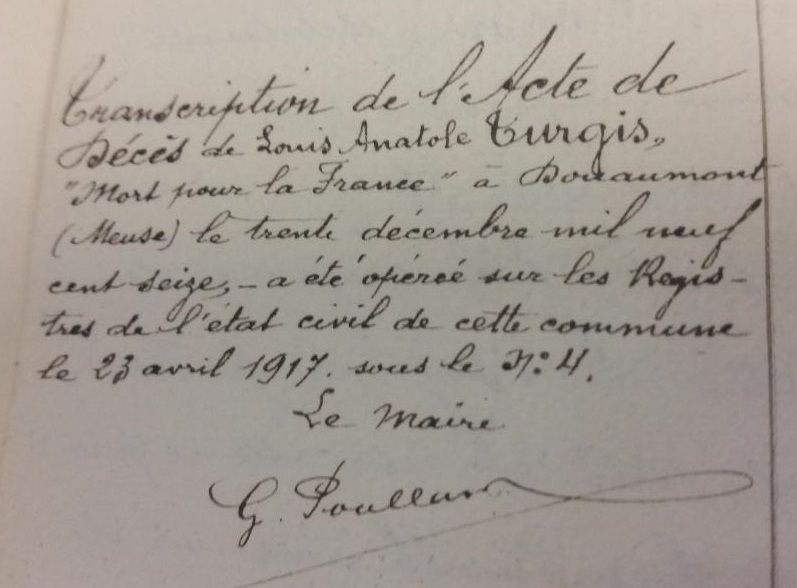 Transcription de l'Acte de
Décès de Louis Anatole Turgis,
"Mort pour la France" à Douaumont
(Meuse) le trente décembre mil neuf
cent seize, - a été opéreé sur les Regis-
tres de l'état civil de cette commune
le 23 avril 1917. sous le N° 4.
Le Maire
G.